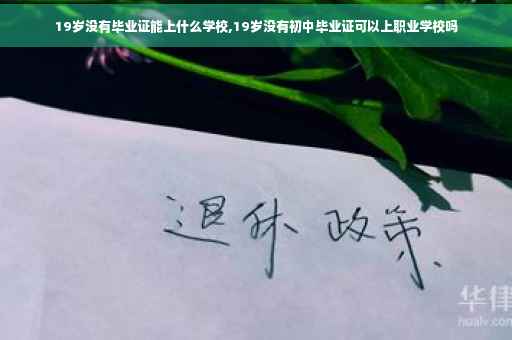 19岁没有毕业证能上什么学校,19岁没有初中毕业证可以上职业学校吗
退休 政策
华律